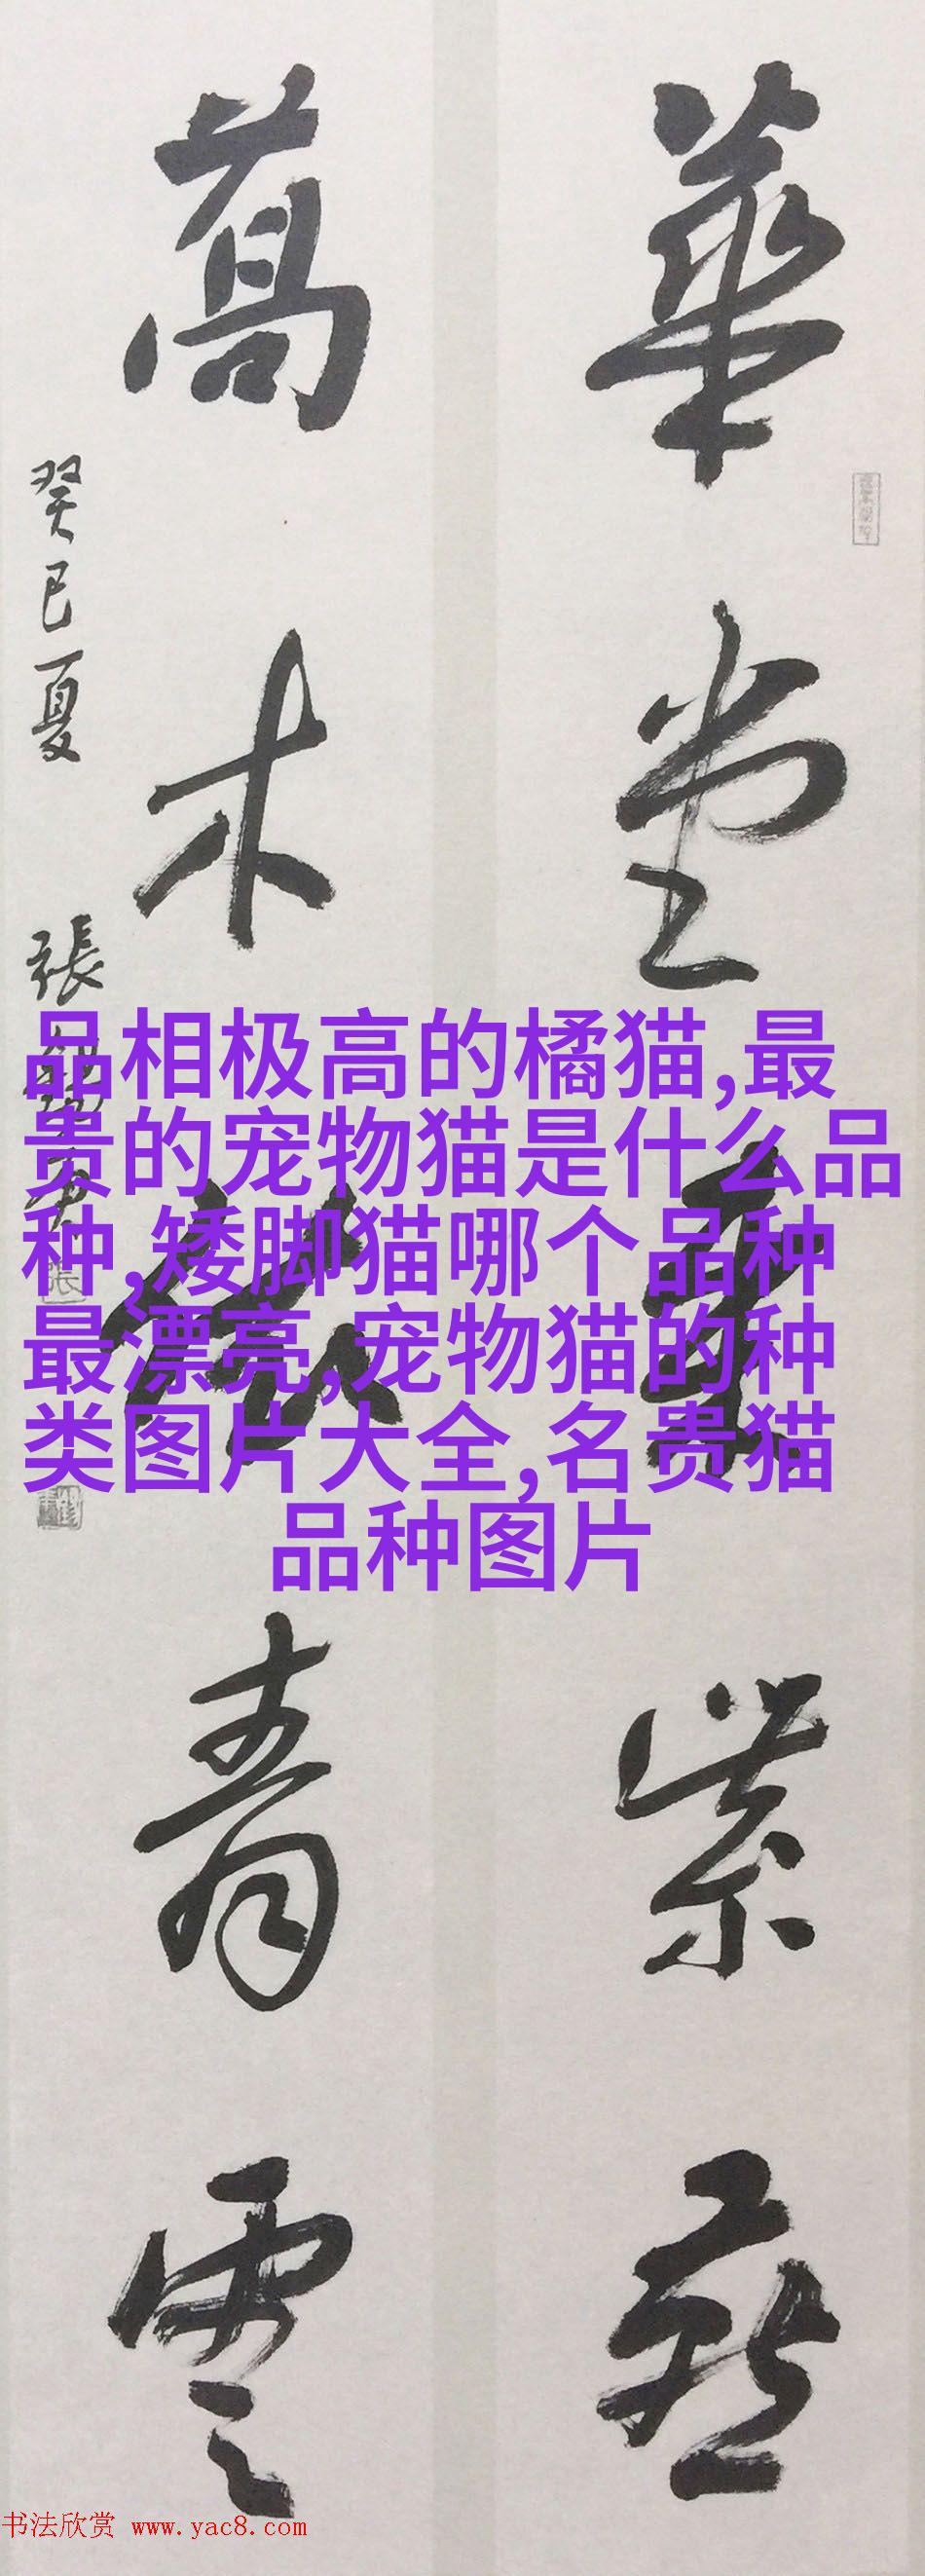 華堂
紫燕
萬木
青雲
癸巳夏
張
品相极高的橘猫,最
贵的宠物猫是什么品
种,矮脚猫哪个品种
最漂亮,宠物猫的种
类图片大全,名贵猫
品种图片
书法欣赏 www.yac8.com